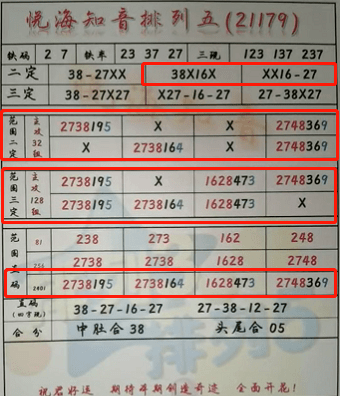 悦海知音排列五(21179)
铁码 2 7 铁率 23 37 27 三现 123 137 237
二定 38-27XX 38X16X XX16-27
三定 38-27X27 X27-16-27 27-38X27
范围二定 主攻32组 2738195 X X 2748369
X 2738164 1628473 X
范围三定 主攻128组 2738195 X 1628473 2748369
2738195 2738164 1628473 X
范围 码 81 238 273 162 248
256 2738 2738 1628 2748
2401 2738195 2738164 1628473 2748369
直码 38-27-16-27 27-38-12-27
合分 中肚合 38 头尾合 05
祝君好运 期待年期创造奇迹 全面开花!